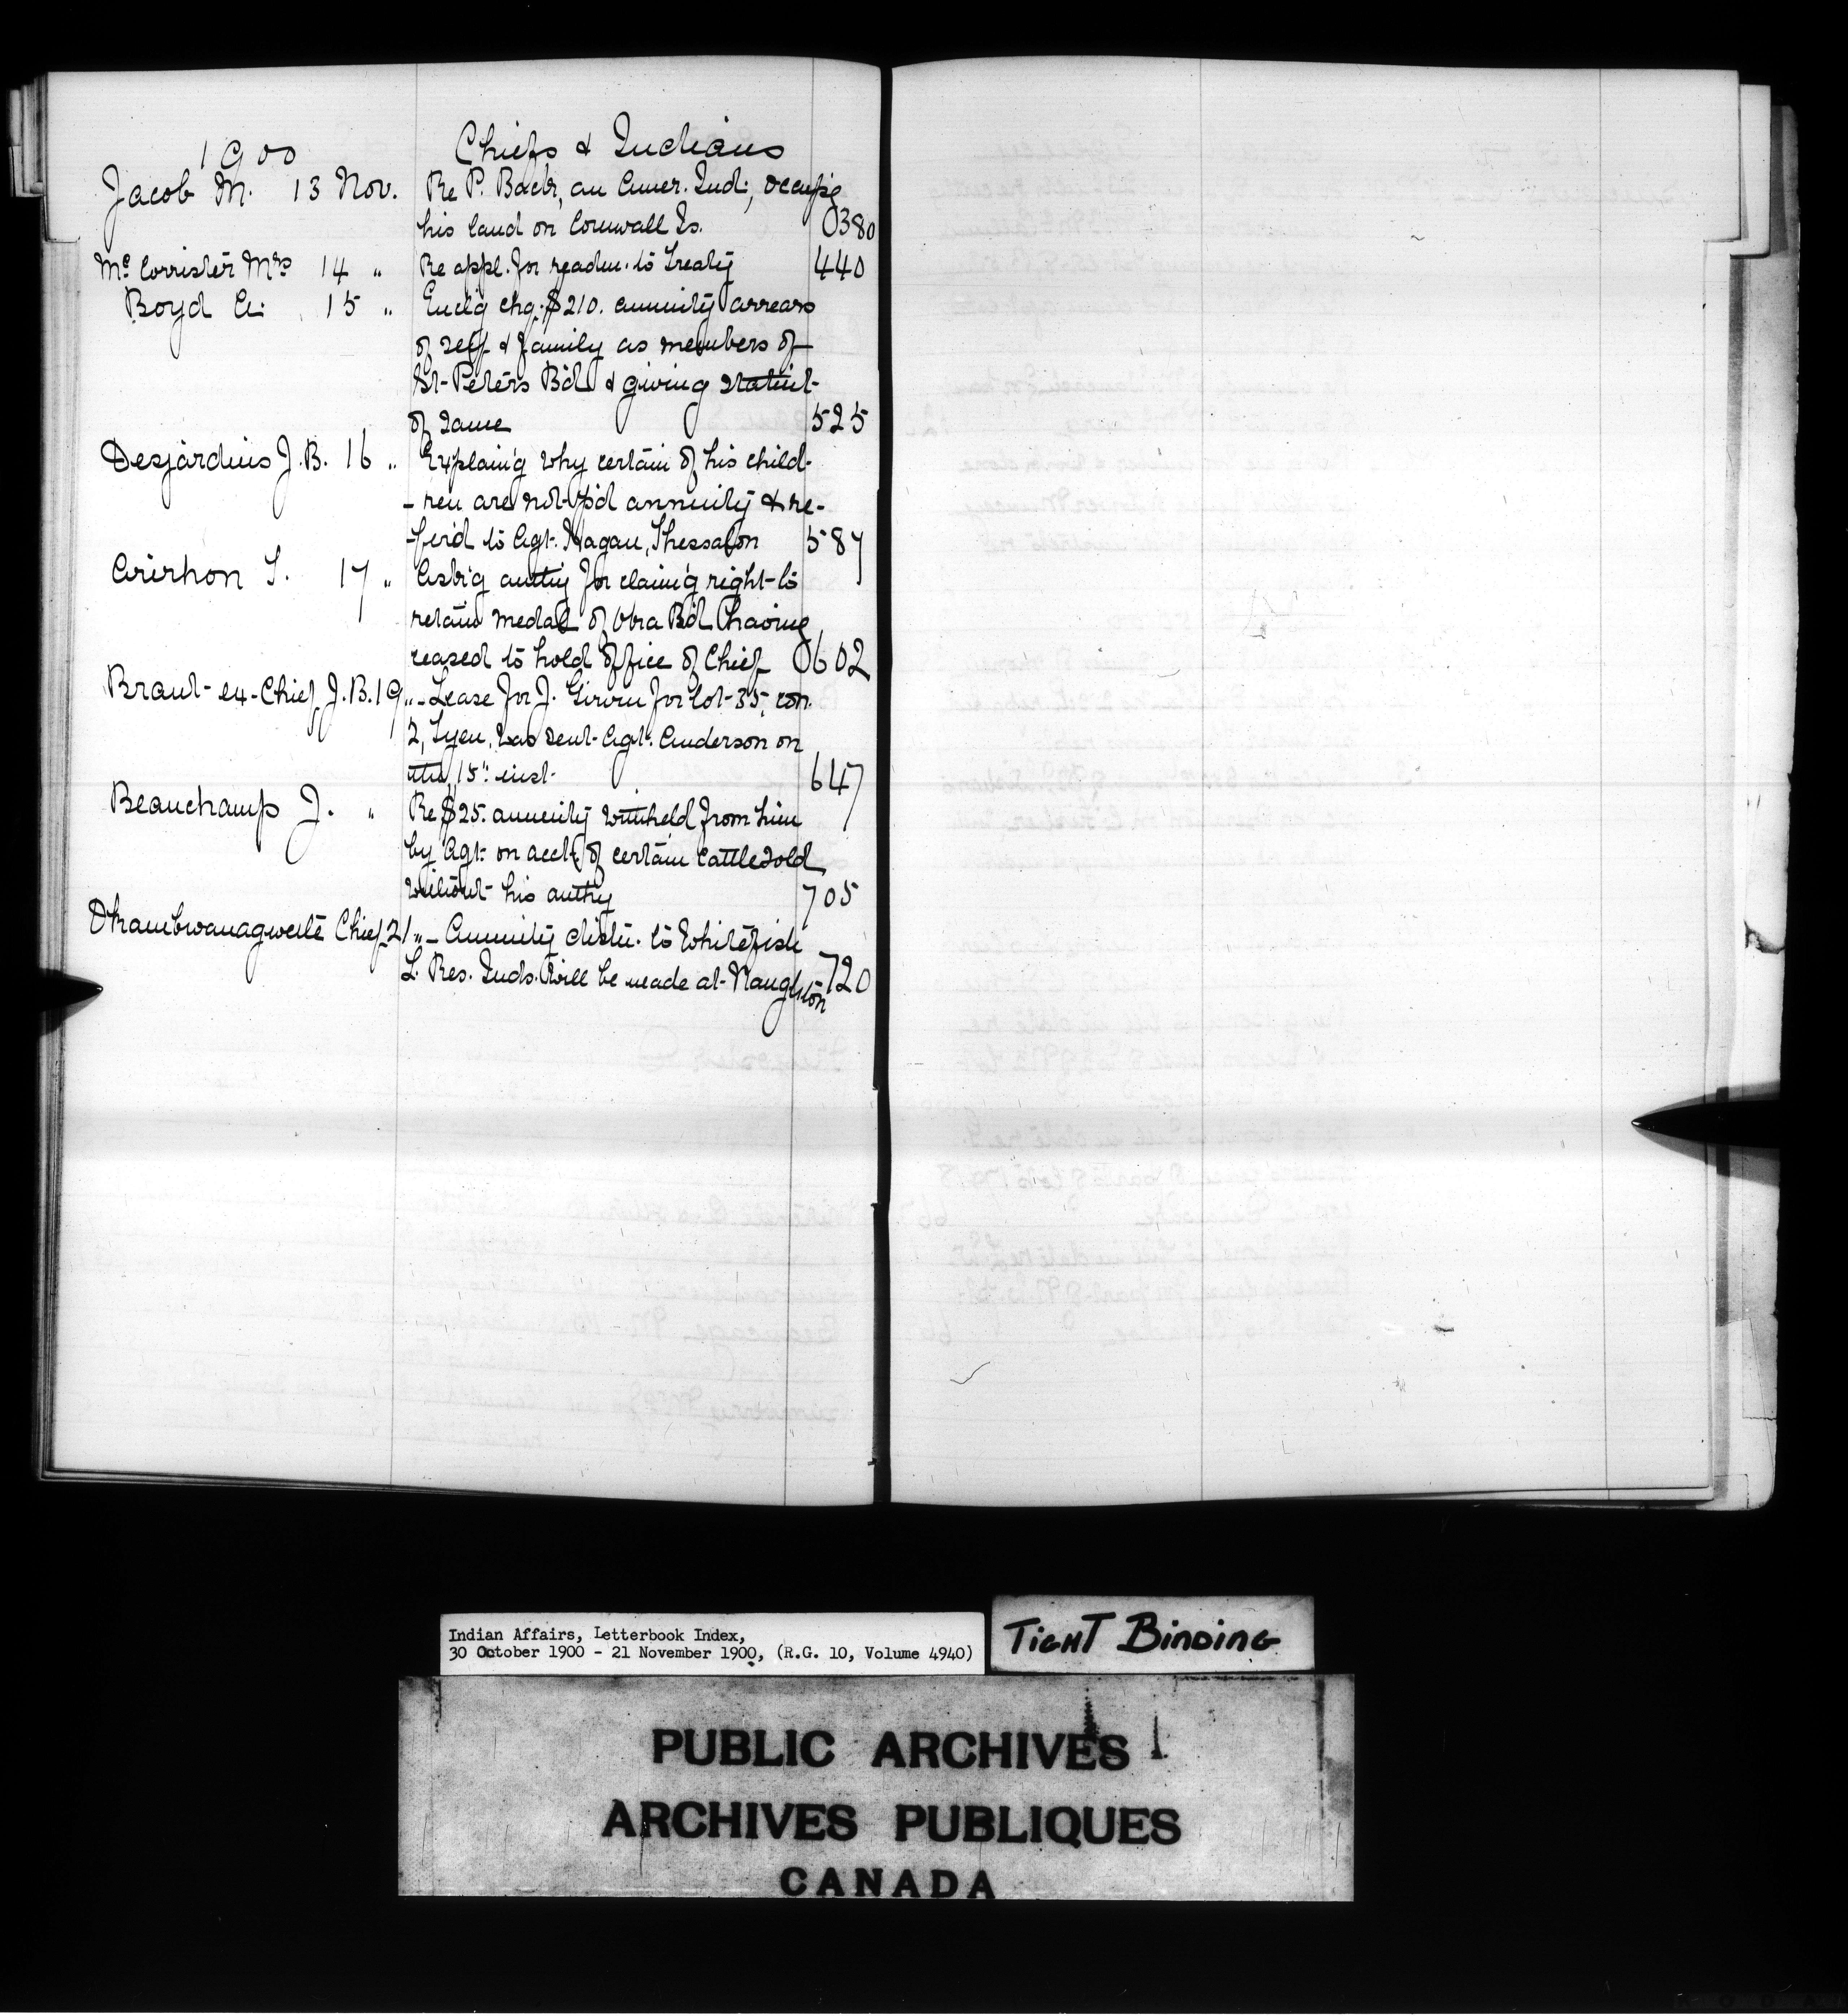 1900 Chiefs & Indians
Jacob M. 13 Nov. Re P. Back, an Amer. Ind:, occup'g
his land on Cornwall Is. 0380
Mc Corrister Mrs 14 " Re appl. for readm. to Treaty 440
Boyd A. 15 " Encl'g chq. $210. annuity arrears
of self & family as members of
St. Peters B'd & giving statm't
of same 525
Desjardins J.B. 16 " Explain'g why certain of his child-
-ren are not p'd annuity & re-
-fer'd to Agt. Hagan, Thessalon 587
Arirhon T. 17 " Ask'g auth'y for claim'g right to
retain medal of Oka B'd having
ceased to hold office of Chief 0602
Brant ex-Chief J.B. 19 " - Lease for J. Girvin for lot 35, con.
2, Tyen. was sent Agt. Anderson on
the 15" inst. 647
Beauchamp J. " Re $25. annuity withheld from him
by Agt. on acct. of certain cattle sold
without his authy 705
Chief 21 " - Annuity distn. to Whitefish
L. Res. Inds. will be made at Naughton 720
Indian Affairs, Letterbook Index,
30 October 1900 - 21 November 1900, (R.G. 10, Volume 4940)
TIGHT BINDING
PUBLIC ARCHIVES
ARCHIVES PUBLIQUES
CANADA